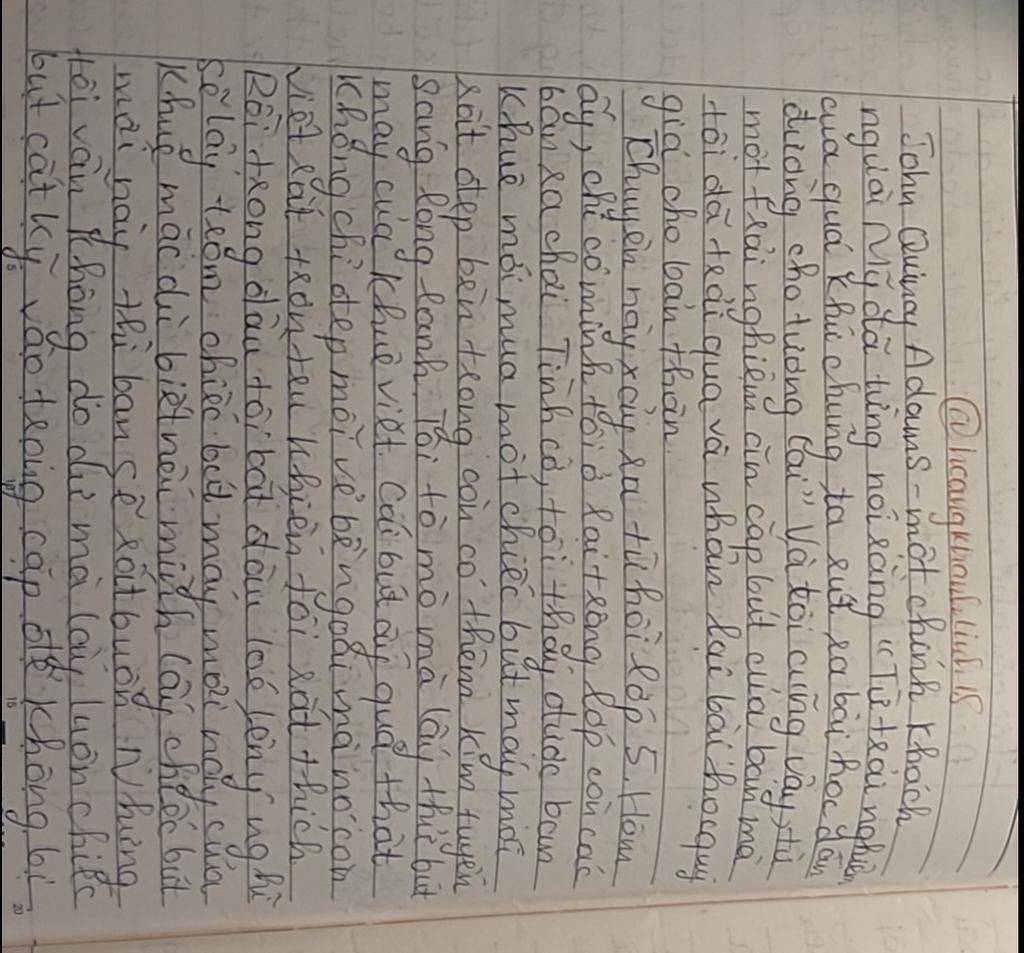 @hoangkhanhlinh18
John Quincy Adams - một chính khách
người Mỹ đã từng nói rằng "Từ trải nghiệm
của quá khứ chúng ta rút ra bài học dẫn
đường cho tương lai" Và tôi cũng vậy, từ
một trải nghiệm ăn cắp bút của bạn mà
tôi đã trải qua và nhận lại bài học quý
giá cho bản thân.
Chuyện này xảy ra từ hồi lớp 5. Hôm
ấy, chỉ có mình tôi ở lại trong lớp còn các
bạn ra chơi. Tình cờ, tôi thấy được bạn
Khuê mới mua một chiếc bút máy mới
rất đẹp bên trong còn có thêm kim tuyến
sáng lóng lánh. Tôi tò mò mà lấy thử bút
máy của Khuê viết. Cái bút ấy quả thật
không chỉ đẹp mỗi vẻ bề ngoài mà nó còn
viết rất trơn tru khiến tôi rất thích
Rồi trong đầu tôi bắt đầu loé lên ý nghĩ
sẽ lấy trộm chiếc bút máy mới này của
Khuê mặc dù biết nếu mình lấy chiếc bút
mới này thì bạn sẽ rất buồn. Nhưng
tôi vẫn không do dự mà lấy luôn chiếc
bút cất kỹ vào trong cặp để không bị